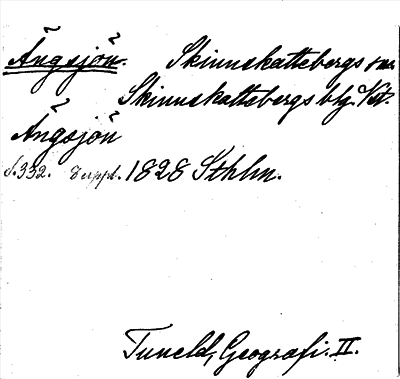 Ängsjön. Skinnskattebergs sn.
Skinnskattebergs blg. Vstm.
Ängsjön
s.332. 8 uppl. 1828 Sthlm.
Tuneld, Geografi. II.